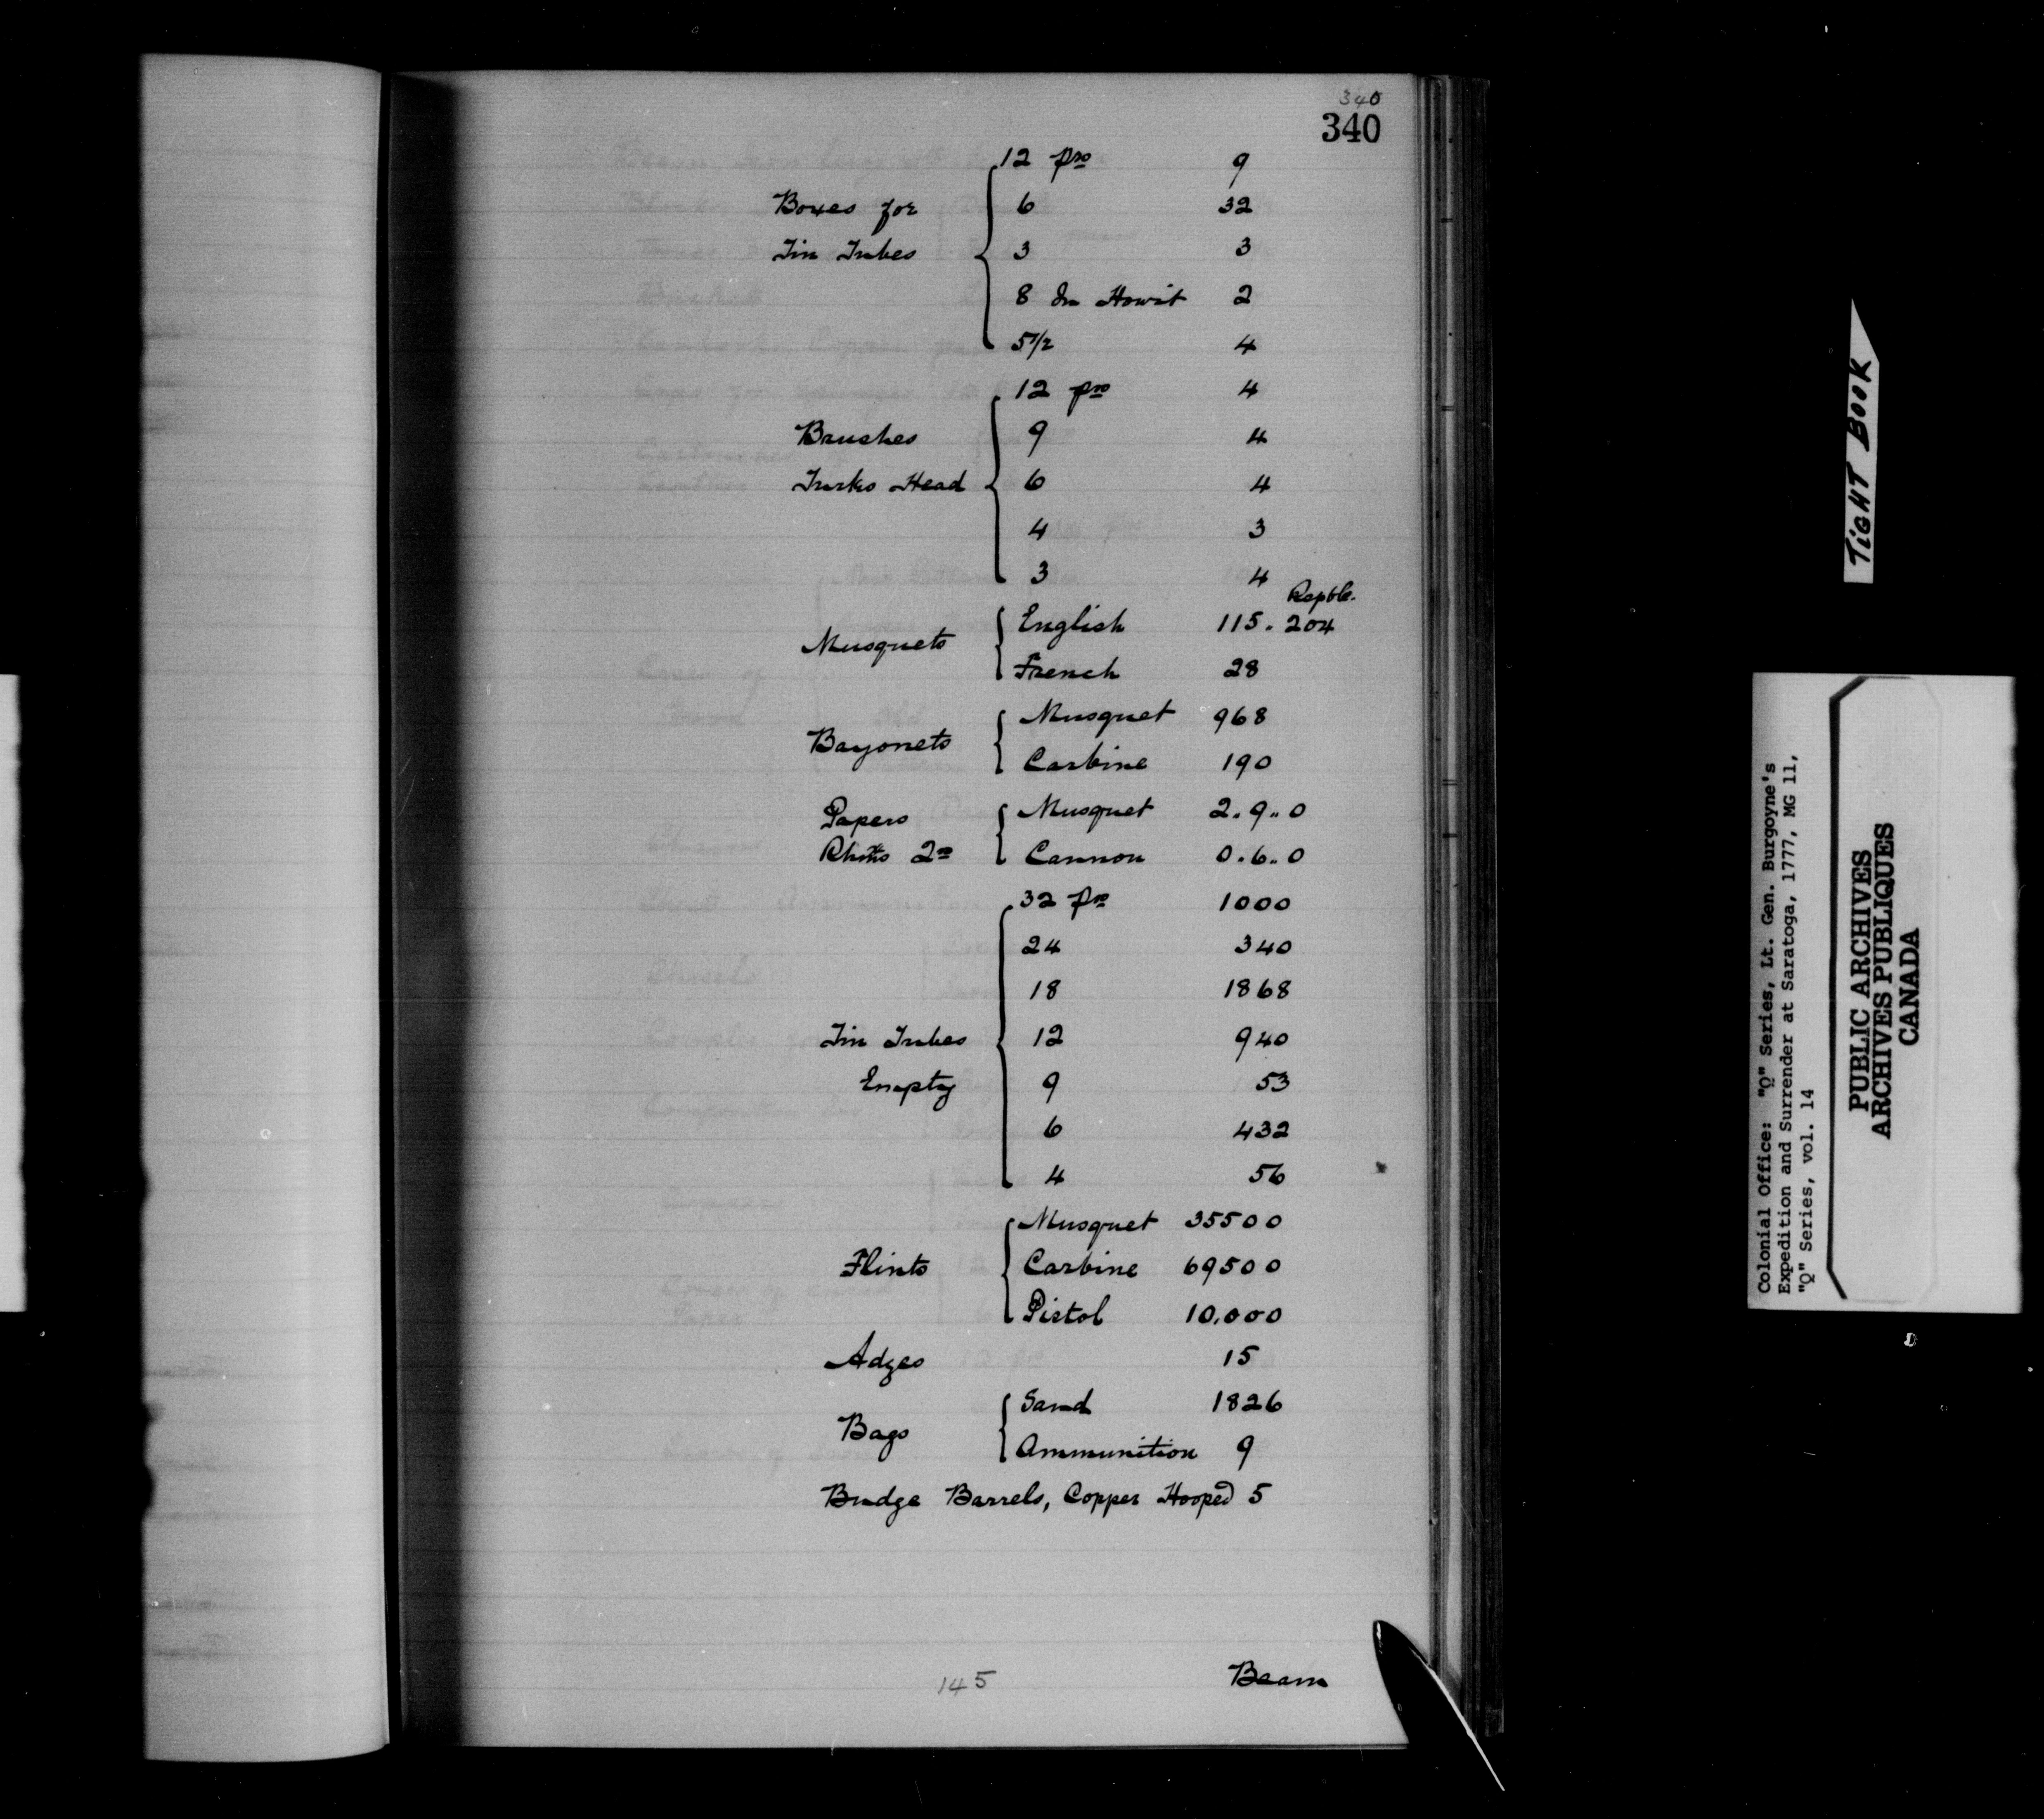 340
340
12 pro 9
Boxes for 6 32
Tin Tubes 3 3
8 In Howit 2
5 1/2 4
12 pro 4
Brushes 9 4
Turks Head 6 4
4 3
3 4
Repble.
English 115. 204
Musquets
French 28
Musquet 968
Bayonets
Carbine 190
Papers Musquet 2. 9.. 0
2 Cannon 0. 6.. 0
32 pr 1000
24 340
18 1868
Tin Tubes 12 940
Empty 9 53
6 432
4 56
Musquet 35500
Flints Carbine 69500
Pistol 10.000
Adzes 15
Sand 1826
Bags
Ammunition 9
Budge Barrels, Copper Hooped 5
145 Beam
TIGHT BOOK
Colonial Office: "Q" Series, Lt. Gen. Burgoyne's
Expedition and Surrender at Saratoga, 1777, MG 11,
"Q" Series, vol. 14
PUBLIC ARCHIVES
ARCHIVES PUBLIQUES
CANADA